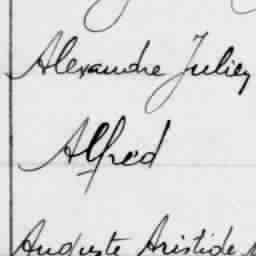 Alexandre Julien
Alfred
Auguste Aristide